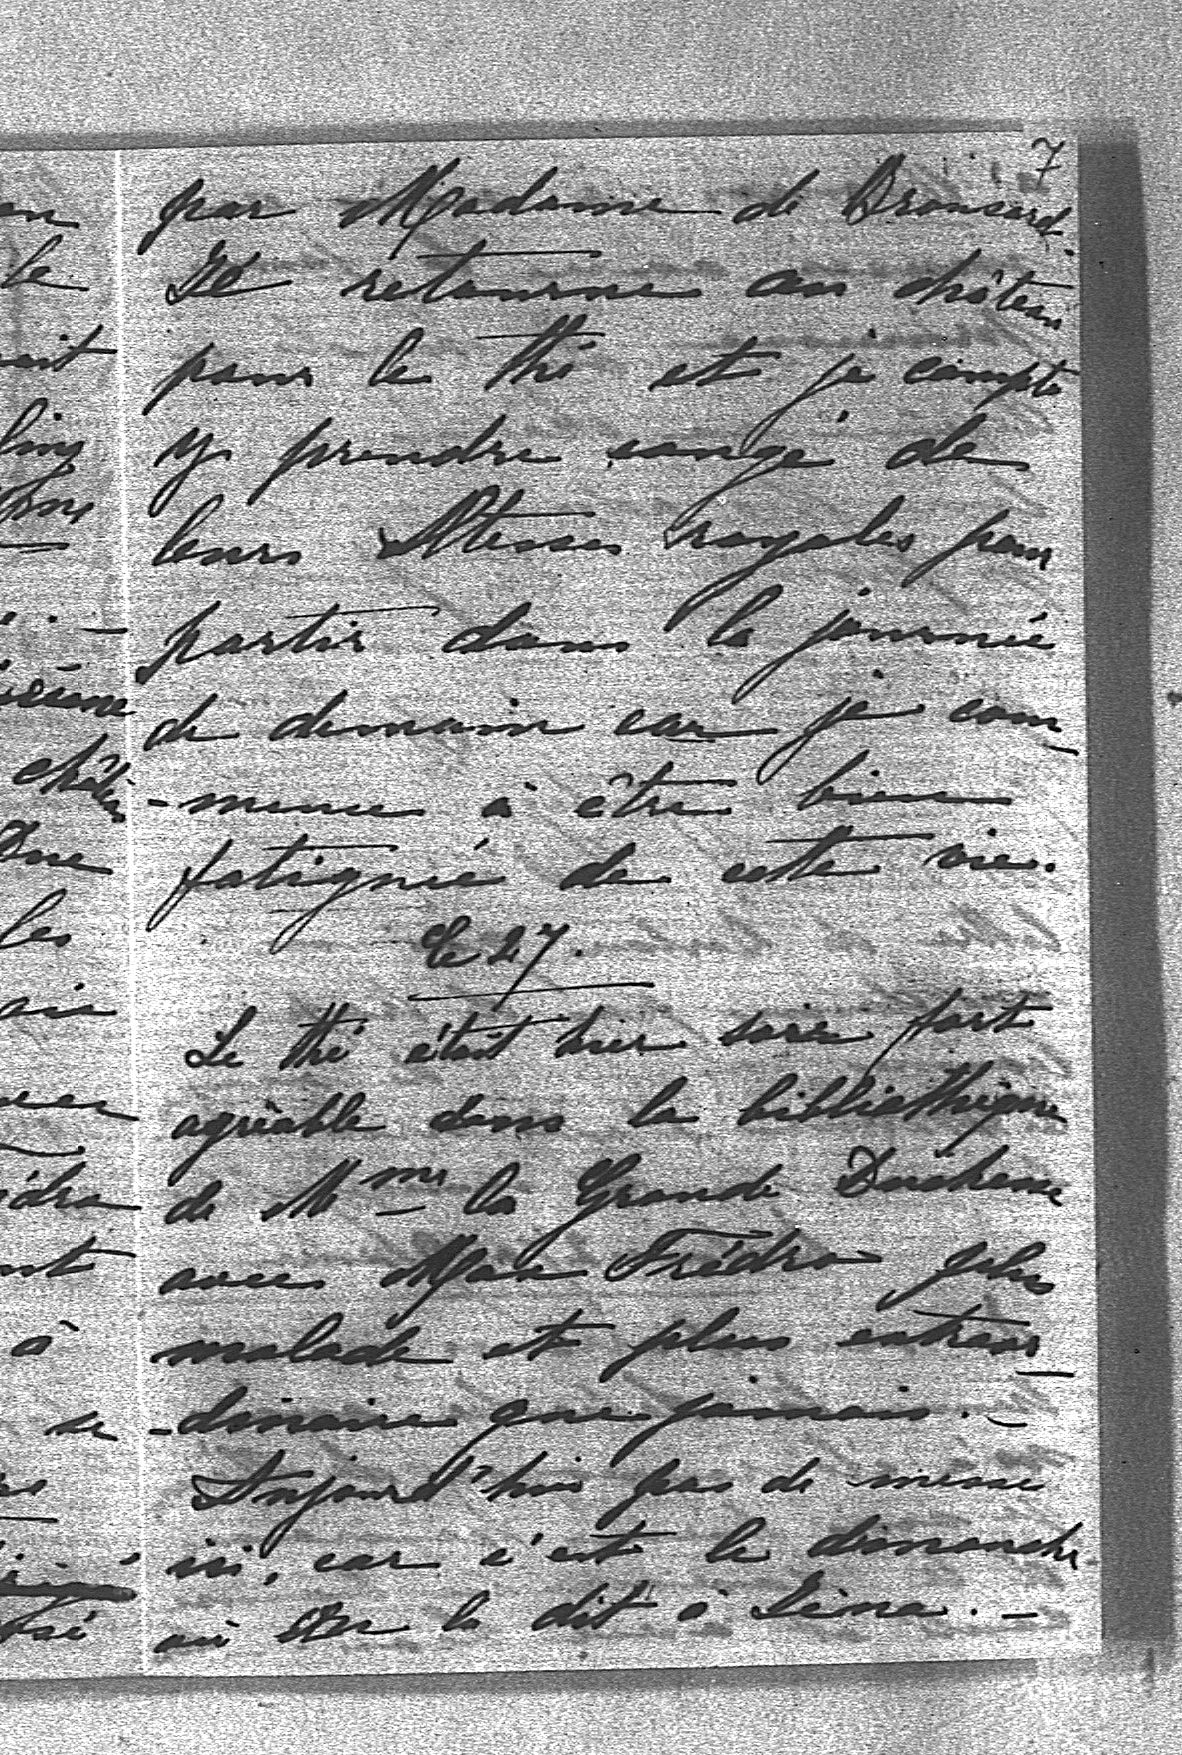 7
par Madame de Bronsart.
Je retourne au château
pour le thé et je compte
y prendre congé de
leurs Altesses royales pour
partir dans la journée
de demain car je com
-mence à être bien
fatiguée de cette vie.
Le 27.
Le thé était hier soir fort
agréable dans la bibliothèque
de Mme la Grande Duchesse
avec Max Frédro plus
malade et plus extraor
-dinaire que jamais. –
Aujourd'hui pas de messe
ici, car c'est le dimanche
où on la dit à Iéna. –
an
le
ait
château
les
nt
à
se